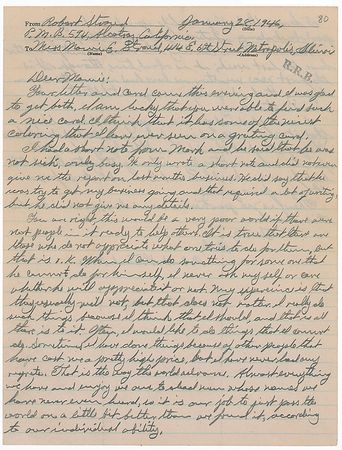 80
From Robert Stroud January 28, 1946,
P.M.B. 594, Alcatraz, California (Date)
To Miss Mamie E. Stroud, E. 6th Street Metropolis, Illinois
(Name) (Address)
R.R.B.
Dear Mamie:
Your letter and card came this evening and I was glad
to get both. I am lucky that you were able to find such
a nice card. I think that it has some of the nicest
coloring that I have ever seen on a greeting card.
I had a short note from Mark and he said that he was
not sick, only busy. He only wrote a short note and did not even
give me the report on last months business. He did say that he
was trying to get my business going and that required a lot of writing,
but he did not give any details.
You are right, this would be a very poor world if there were
not people in it ready to help others. It is true that there are
those who do not appreciate what one tries to do for them, but
that is O.K. When I can do something for some one that
he cannot do for himself, I never ask myself or care
whether he will appreciate it or not. My experience is that
they usually will not, but that does not matter. I really do
such things because I think that I should, and that is all
there is to it. Often, I would like to do things that I cannot
do. Sometimes I have done things because of other people that
have cost me a pretty high price, but I have never had any
regrets. That is the way the world advances. Almost everything
we have and enjoy we owe to dead men whose names we
have never even heard, so it is our job to just pass the
world on a little bit better than we found it, according
to our individual ability.